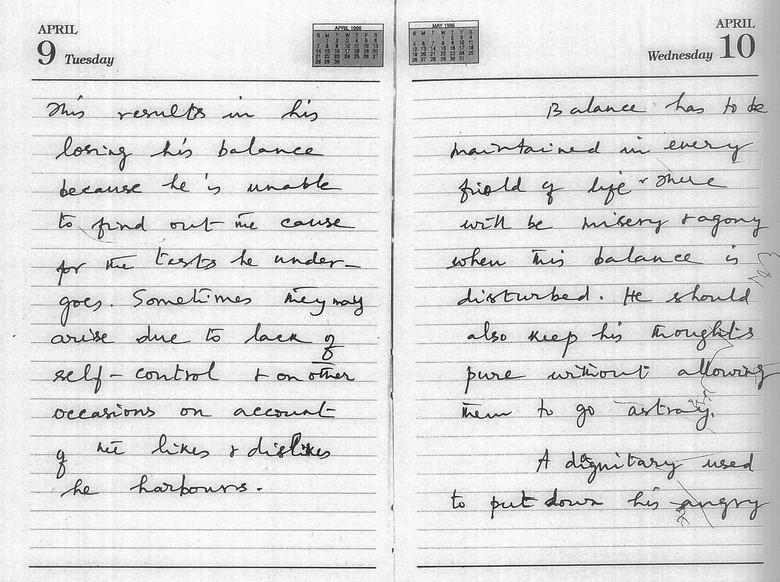 APRIL
9 Tuesday
APRIL 1996
This results in his
losing his balance
because he is unable
to find out the cause
for the tests he under-
goes. Sometimes they may
arise due to lack of
self-control & on other
occasions on account
of the likes & dislikes
he harbours.
MAY 1996
APRIL
Wednesday 10
Balance has to be
maintained in every
field of life & there
will be misery & agony
when this balance is
disturbed. He should
also keep his thoughts
pure without allowing
them to go astray.
A dignitary used
to put down his angry